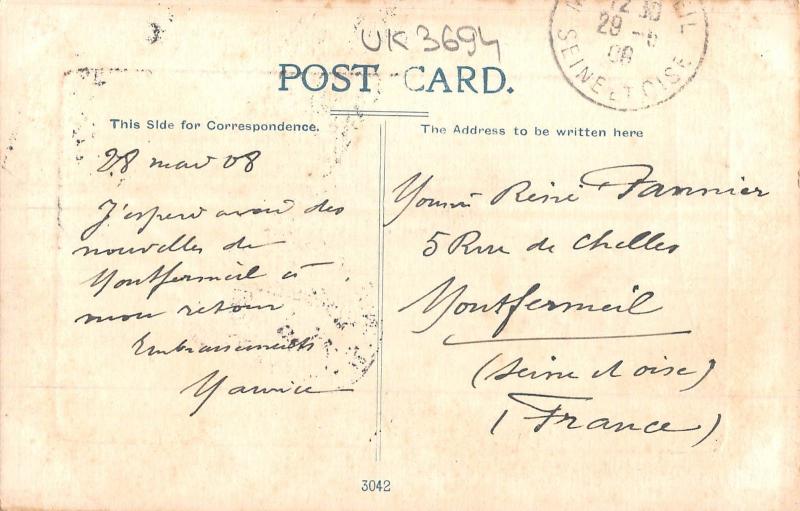 UK3694
12 30
29 - 5
08
SEINE ET OISE
POST CARD.
This Side for Correspondence.
The Address to be written here
28 mai 08
J'espère avoir des
nouvelles de
Montfermeil à
mon retour
Embrassements
Maurice
René Fannier
5 Rue de Chelles
Montfermeil
(Seine et oise)
(France)
3042